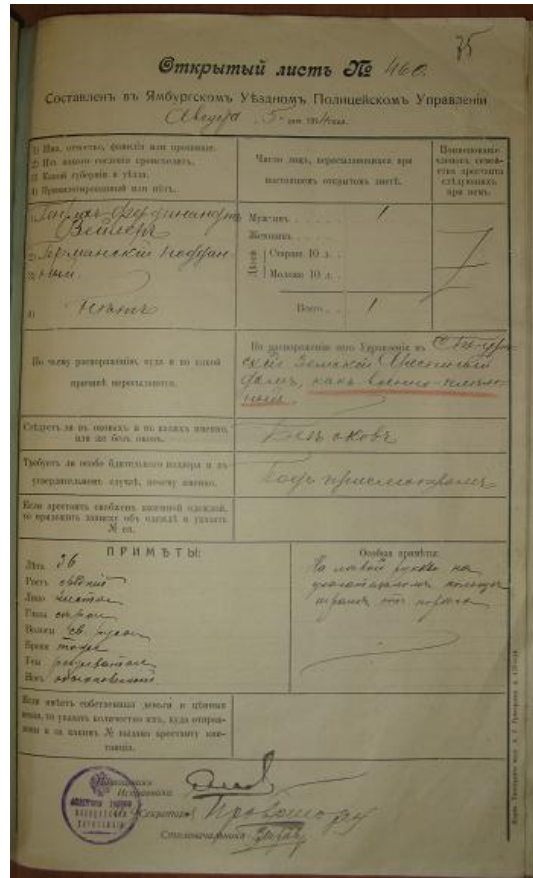 75
Открытый листъ № 460.
Составленъ въ Ямбургскомъ Уѣздномъ Полицейскомъ Управленіи
Августа 5 дня 1914 года.
1) Имя, отчество, фамилія или прозваніе.
2) Изъ какого сословія происходитъ.
3) Какой губерніи и уѣзда.
4) Привилегированный или нѣтъ.
Число лицъ, пересылающихся при
настоящемъ открытомъ листѣ.
Наименованіе
членовъ семей-
ства арестанта
слѣдующихъ
при немъ.
1) Фердинандъ
Вейлеръ
2) Германскій поддан-
3) ный.
4) Нѣтъ
Мужчинъ 1
Женщинъ
Дѣтей
Старше 10 л.
Моложе 10 л.
Всего 1
По чьему распоряженію, куда и по какой
причинѣ пересылается.
По распоряженію сего Управленія въ
домъ, какъ военно-плѣн-
ный.
Слѣдуетъ ли въ оковахъ и въ какихъ именно,
или же безъ оковъ.
Безъ оковъ
Требуетъ ли особо бдительнаго надзора и въ
утвердительномъ случаѣ, почему именно.
Подъ присмотромъ
Если арестантъ снабженъ казенной одеждой,
то приложить записку объ одеждѣ и указать
№ ея.
ПРИМѢТЫ:
Лѣта 36
Ростъ средній
Лицо чистое
Глаза сѣрые
Волосы св. русые
Брови тоже
Тѣл
Носъ обыкновенный
Особыя примѣты:
На лѣвой рукѣ на
указательномъ пальцѣ
шрамъ отъ пореза
Если имѣетъ собственныя деньги и цѣнныя
вещи, то указать количество ихъ, куда отправ-
лены и за какимъ № выдана арестанту кви-
танція.
Помощникъ
Исправника
Секретарь
Столоначальникъ